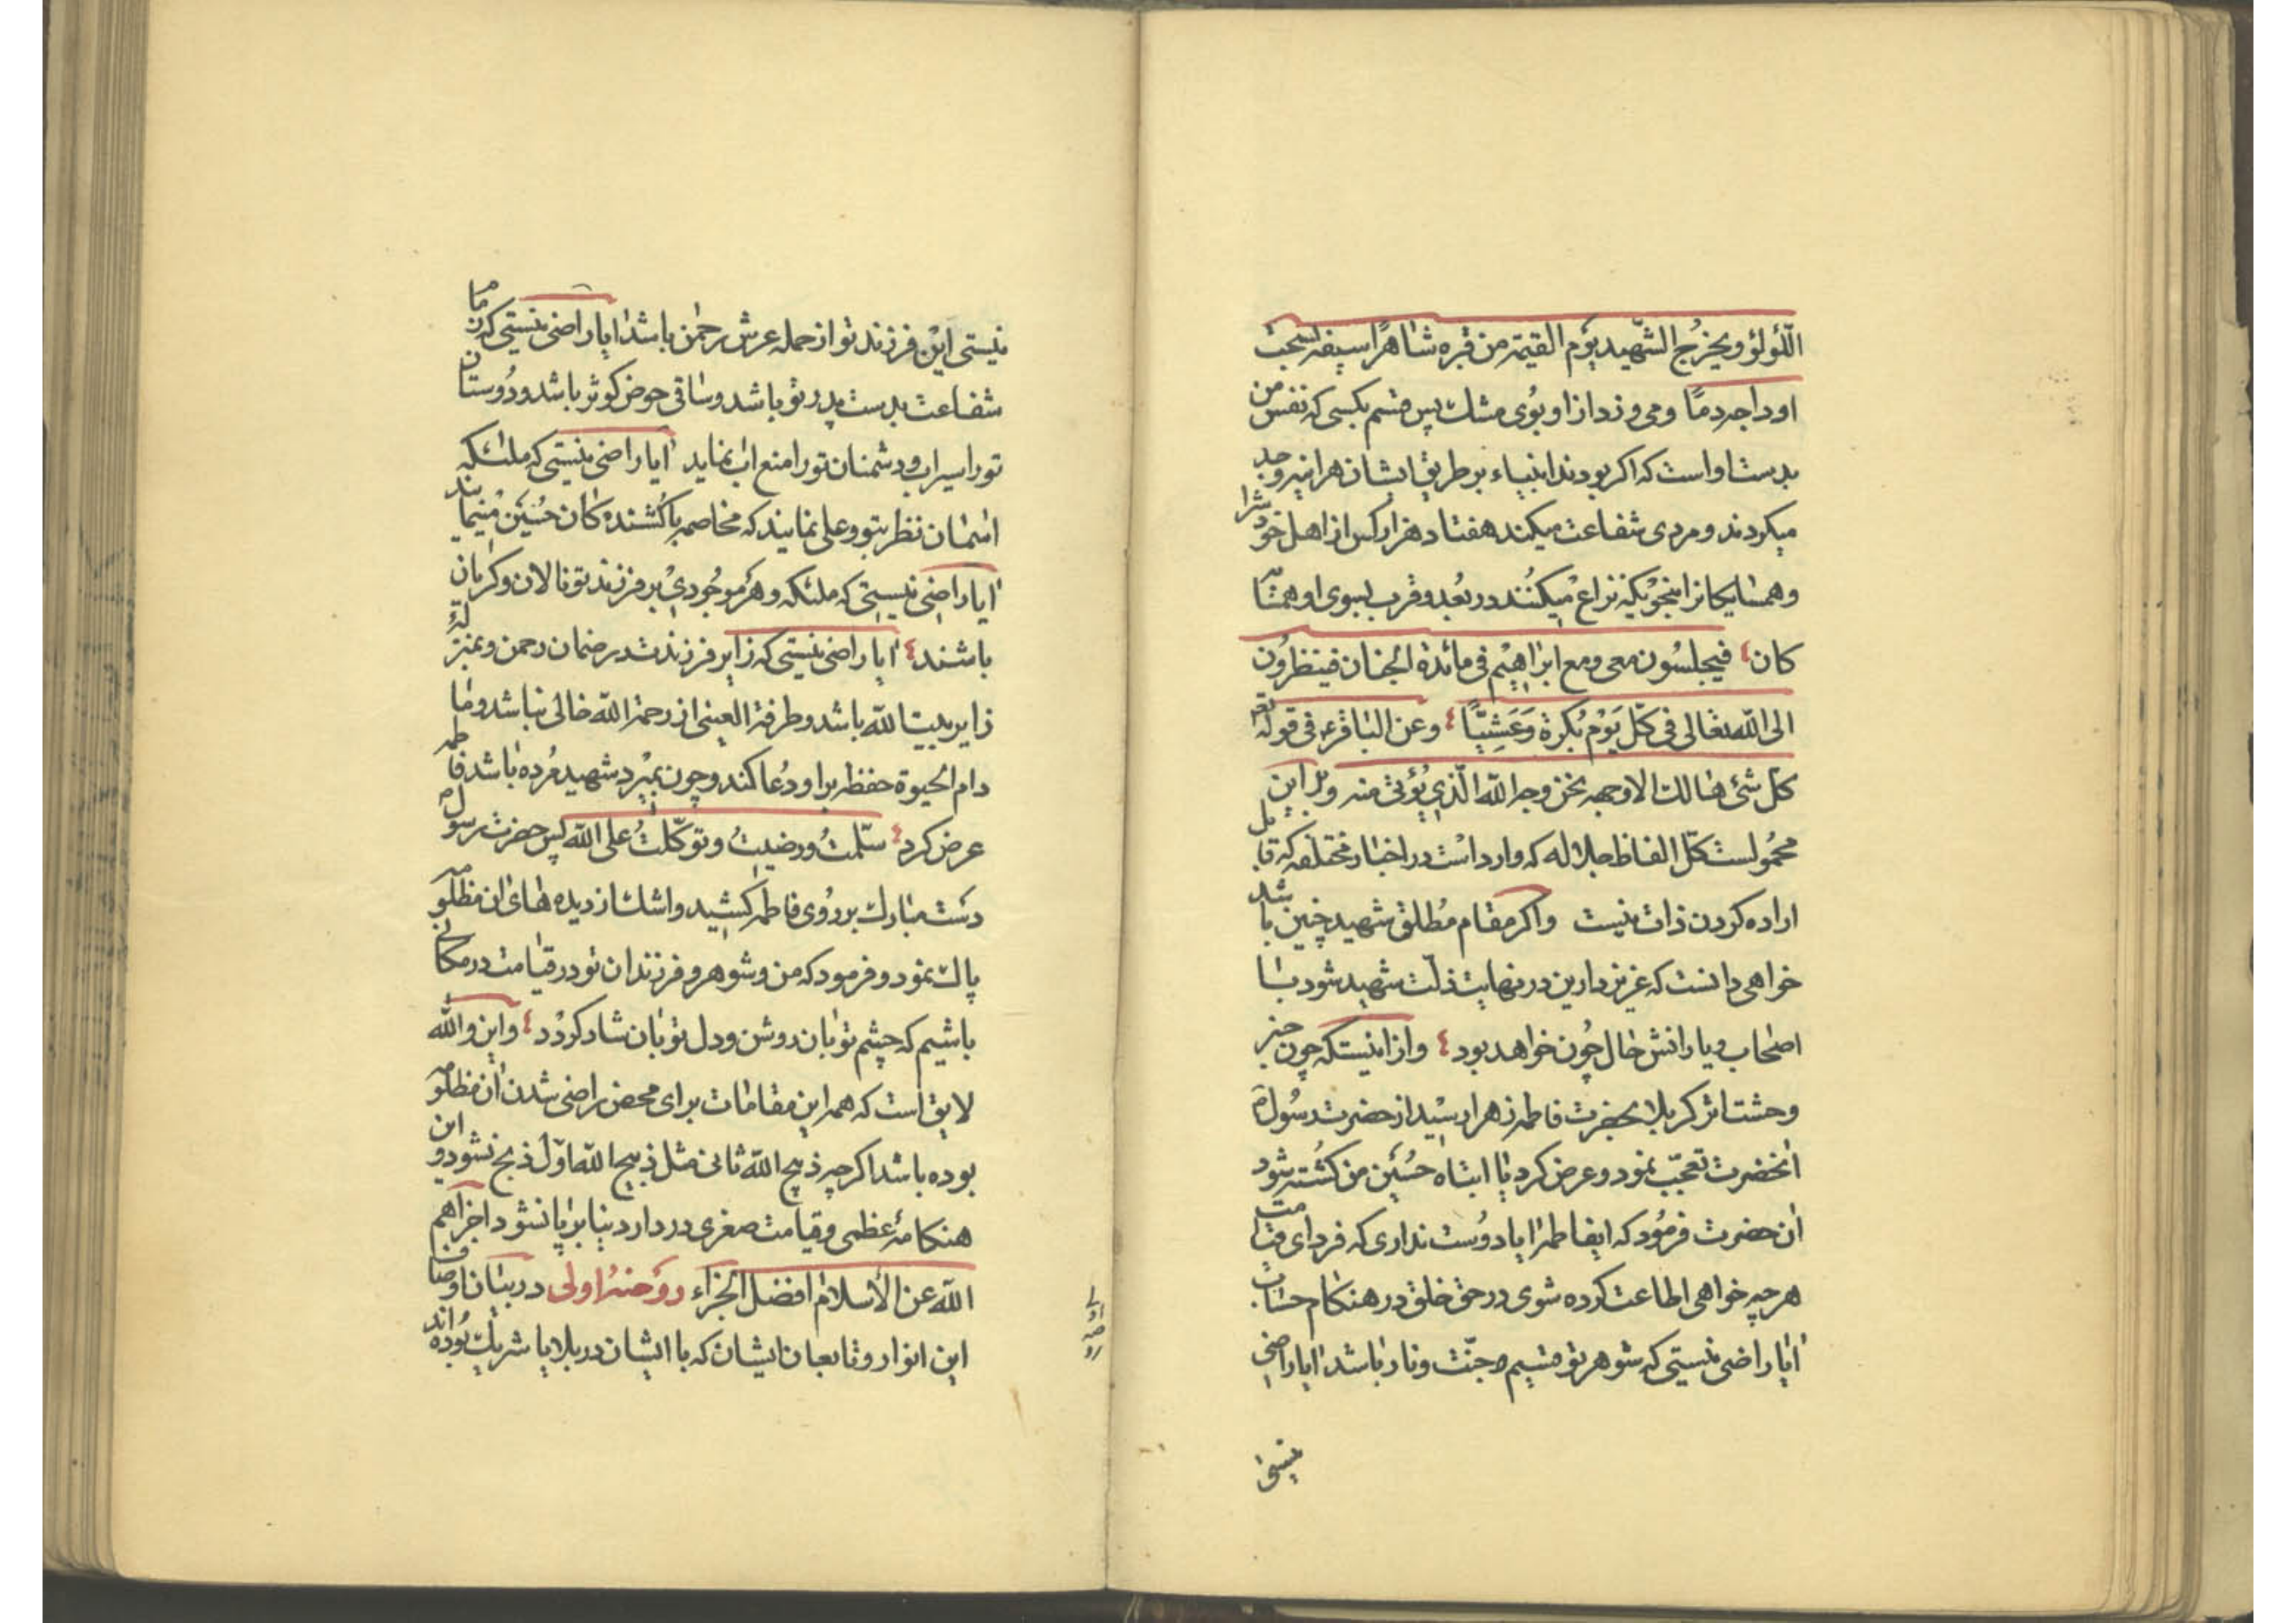 اللّؤلؤ ويخرُج الشّهيد يوَم القيٰمة من قبره شٰاهرًا سيفه تشخب
اوداجه دمًا ومی وزد از او بوُی مشك پس قسم بكسی كه نفس من
بدست او است كه اكر بودند انبياء بر طريق ايشان هراينه وجد
ميكردند و مردی شفاعت ميكند هفتاد هزار كس از اهل خود شرا
وهمسٰايكٰانرا بنحويكه نزاع ميكنُند در بُعد و قرب بسوی او همسٰا
كان فيجلسُون معی ومع ابرٰاهيم فی مائدة الجنان فينظروُن
الی الله تعٰالی فی كلّ يَوْم بُكرة وَعَشِيًّا وعن البٰاقر۴ فی قوله تع
كل شیٔ هٰالك الا وجهه نحن وجه الله الّذی يُؤتی منه وبر اين
محمُولست كلّ الفاظ جلاله كه وارد است در اخبٰار مختلفه كه قابل
اراده كردن ذات نيست واكر مقٰام مُطلق شهيد چنين باشد
خواهی دانست كه عزيز دارين در نهايت ذلّت شهيد شود با
اصحٰاب و يارانش حٰال چُون خواهد بود واز اينستكه چون خبر
وحشت اثر كربلا بحضرت فاطمه زهرا رسيد از حضرت رسُول ص
انحضرت تعجّب نمود و عرض كرد يٰا ابتاه حُسَين من كُشته شود
ان حضرت فرمُود كه ايفٰاطمه ايا دوُست نداری كه فردای قيٰامت
هر چه خواهی اطاعت كرده شوی در حق خلق در هنكٰام حسٰاب
ايٰا راضی نيستی كه شوهر تو قسيم جنّت ونار باشد ايا راضی
نيستی
نيستی اين فرزند تو از حمله عرش رحمٰن باشد ايا راضی نيستی كه زمٰا
شفٰاعت بدست پدر تو باشد و سٰاقی حوض كوثر باشد و دوُستان
تو را سيراب و دشمنان تو را منع اب نمايد ايا راضی نيستی كه ملٰئكه
اسمٰان نظر بتو و علی نمايند كه مخاصمه با كُشنده كٰان حُسَين مينمايند
ايا راضی نيستی كه ملٰئكه و هر موجُودیْ بر فرزند تو نالان وكريان
باشند ايا راضی نيستی كه زاير فرزندت در ضمان رحمن وبمنزلهٔ
زاير بيت الله باشد و طرفة العينی از رحمة الله خالی نباشد و مٰا
دام الحيوة حفظه بر او دُعا كنند و چون بميرد شهيد مُرده باشد فاطمه
عرض كرد سلّمتُ ورضيتُ وتوكّلتُ علی الله پس حضرت رسول ص
دست مبٰارك بر روُی فاطمه كشيد و اشك از ديده هٰای ان مظلومه
پاك نمود و فرمود كه من و شوهر و فرزندان تو در قيٰامت در مكانی
باشيم كه چشم تو بٰان روشن و دل تو بٰان شاد كردد واين والله
لايق است كه همه اين مقٰامات برای محض راضی شدن ان مظلومه
بوده باشد اكرچه ذبيح الله ثانی مثل ذبيح الله اوّل ذبح نشود و اين
هنكٰامهٔ عظمی و قيٰامت صغری در دار دنيٰا برپٰا نشود اجزاهم
الله عن الأسلٰام افضل الجزآء روضهٔ اولی در بيٰان اوصاف
اين انوار و تابعان ايشٰان كه با ايشان در بلايا شريك بُوده اند
روضه اولی